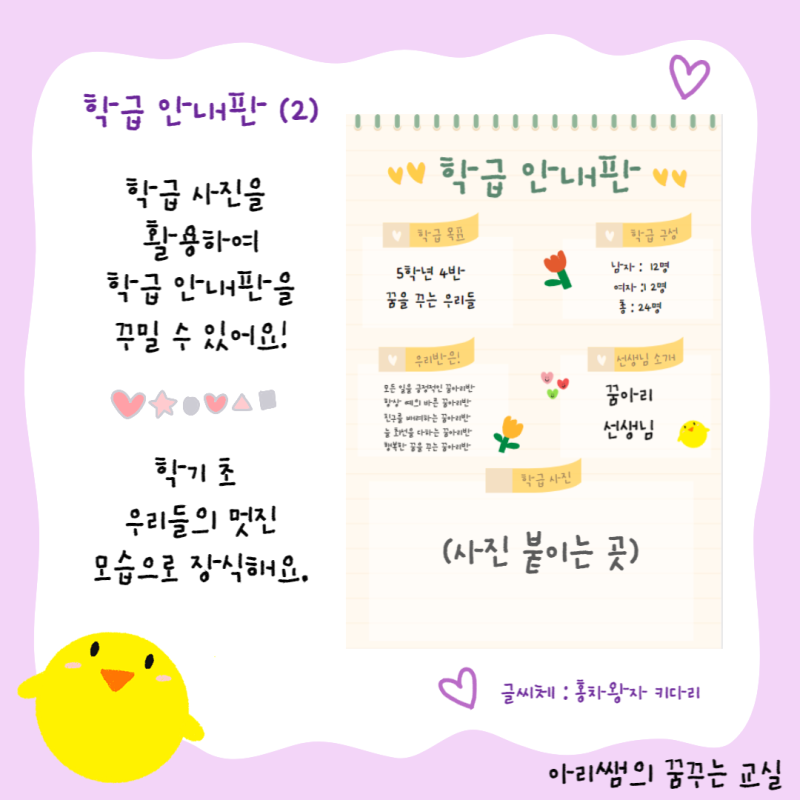 학급 안내판 (2)
학급 사진을
활용하여
학급 안내판을
꾸밀 수 있어요!
학기 초
우리들의 멋진
모습으로 장식해요.
학급 안내판
학급 목표
5학년 4반
꿈을 꾸는 우리들
학급 구성
남자 : 12명
여자 :1 2명
총 : 24명
우리반은!
모든 일을 긍정적인 꿈아리반
항상 예의 바른 꿈아리반
친구를 배려하는 꿈아리반
늘 최선을 다하는 꿈아리반
행복한 꿈을 꾸는 꿈아리반
선생님 소개
꿈아리
선생님
학급 사진
(사진 붙이는 곳)
글씨체 : 홍차왕자 키다리
아리쌤의 꿈꾸는 교실